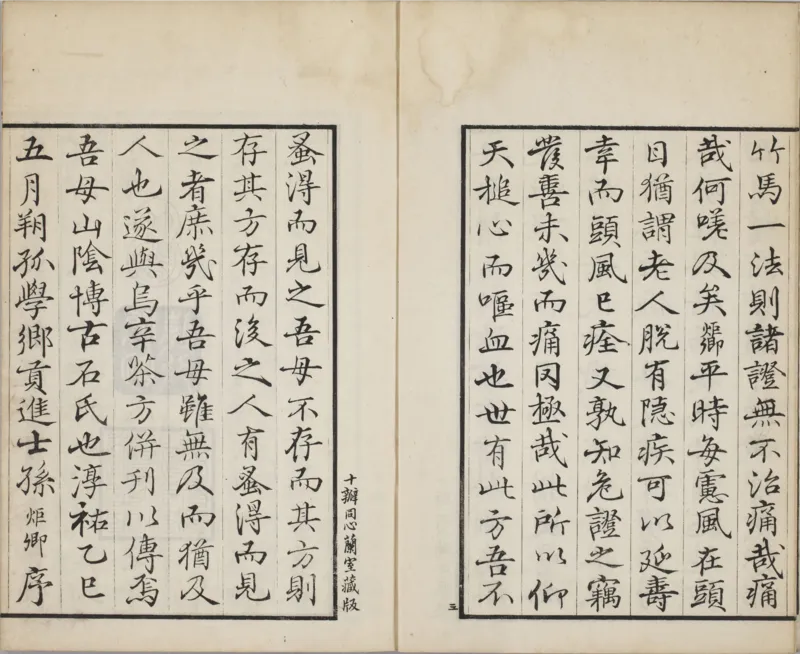 竹馬一法則諸證無不治痛哉痛
哉何嗟及矣㷌平時每慮風在頭
目猶謂老人脫有隐疾可以延壽
幸而頭風已痊又孰知危證之竊
發善未㡬而痛罔極哉此所以仰
天槌心而嘔血也世有此方吾不
三
蚤淂而見之吾母不存而其方則
存其方存而後之人有蚤淂而見
之者庶㡬乎吾母雖無及而猶及
人也遂與烏辛茶方併刋以傳焉
吾母山陰博古石氏也淳祐乙巳
五月朔孤學鄉貢進士孫炬卿序
十瓣同心蘭室藏版